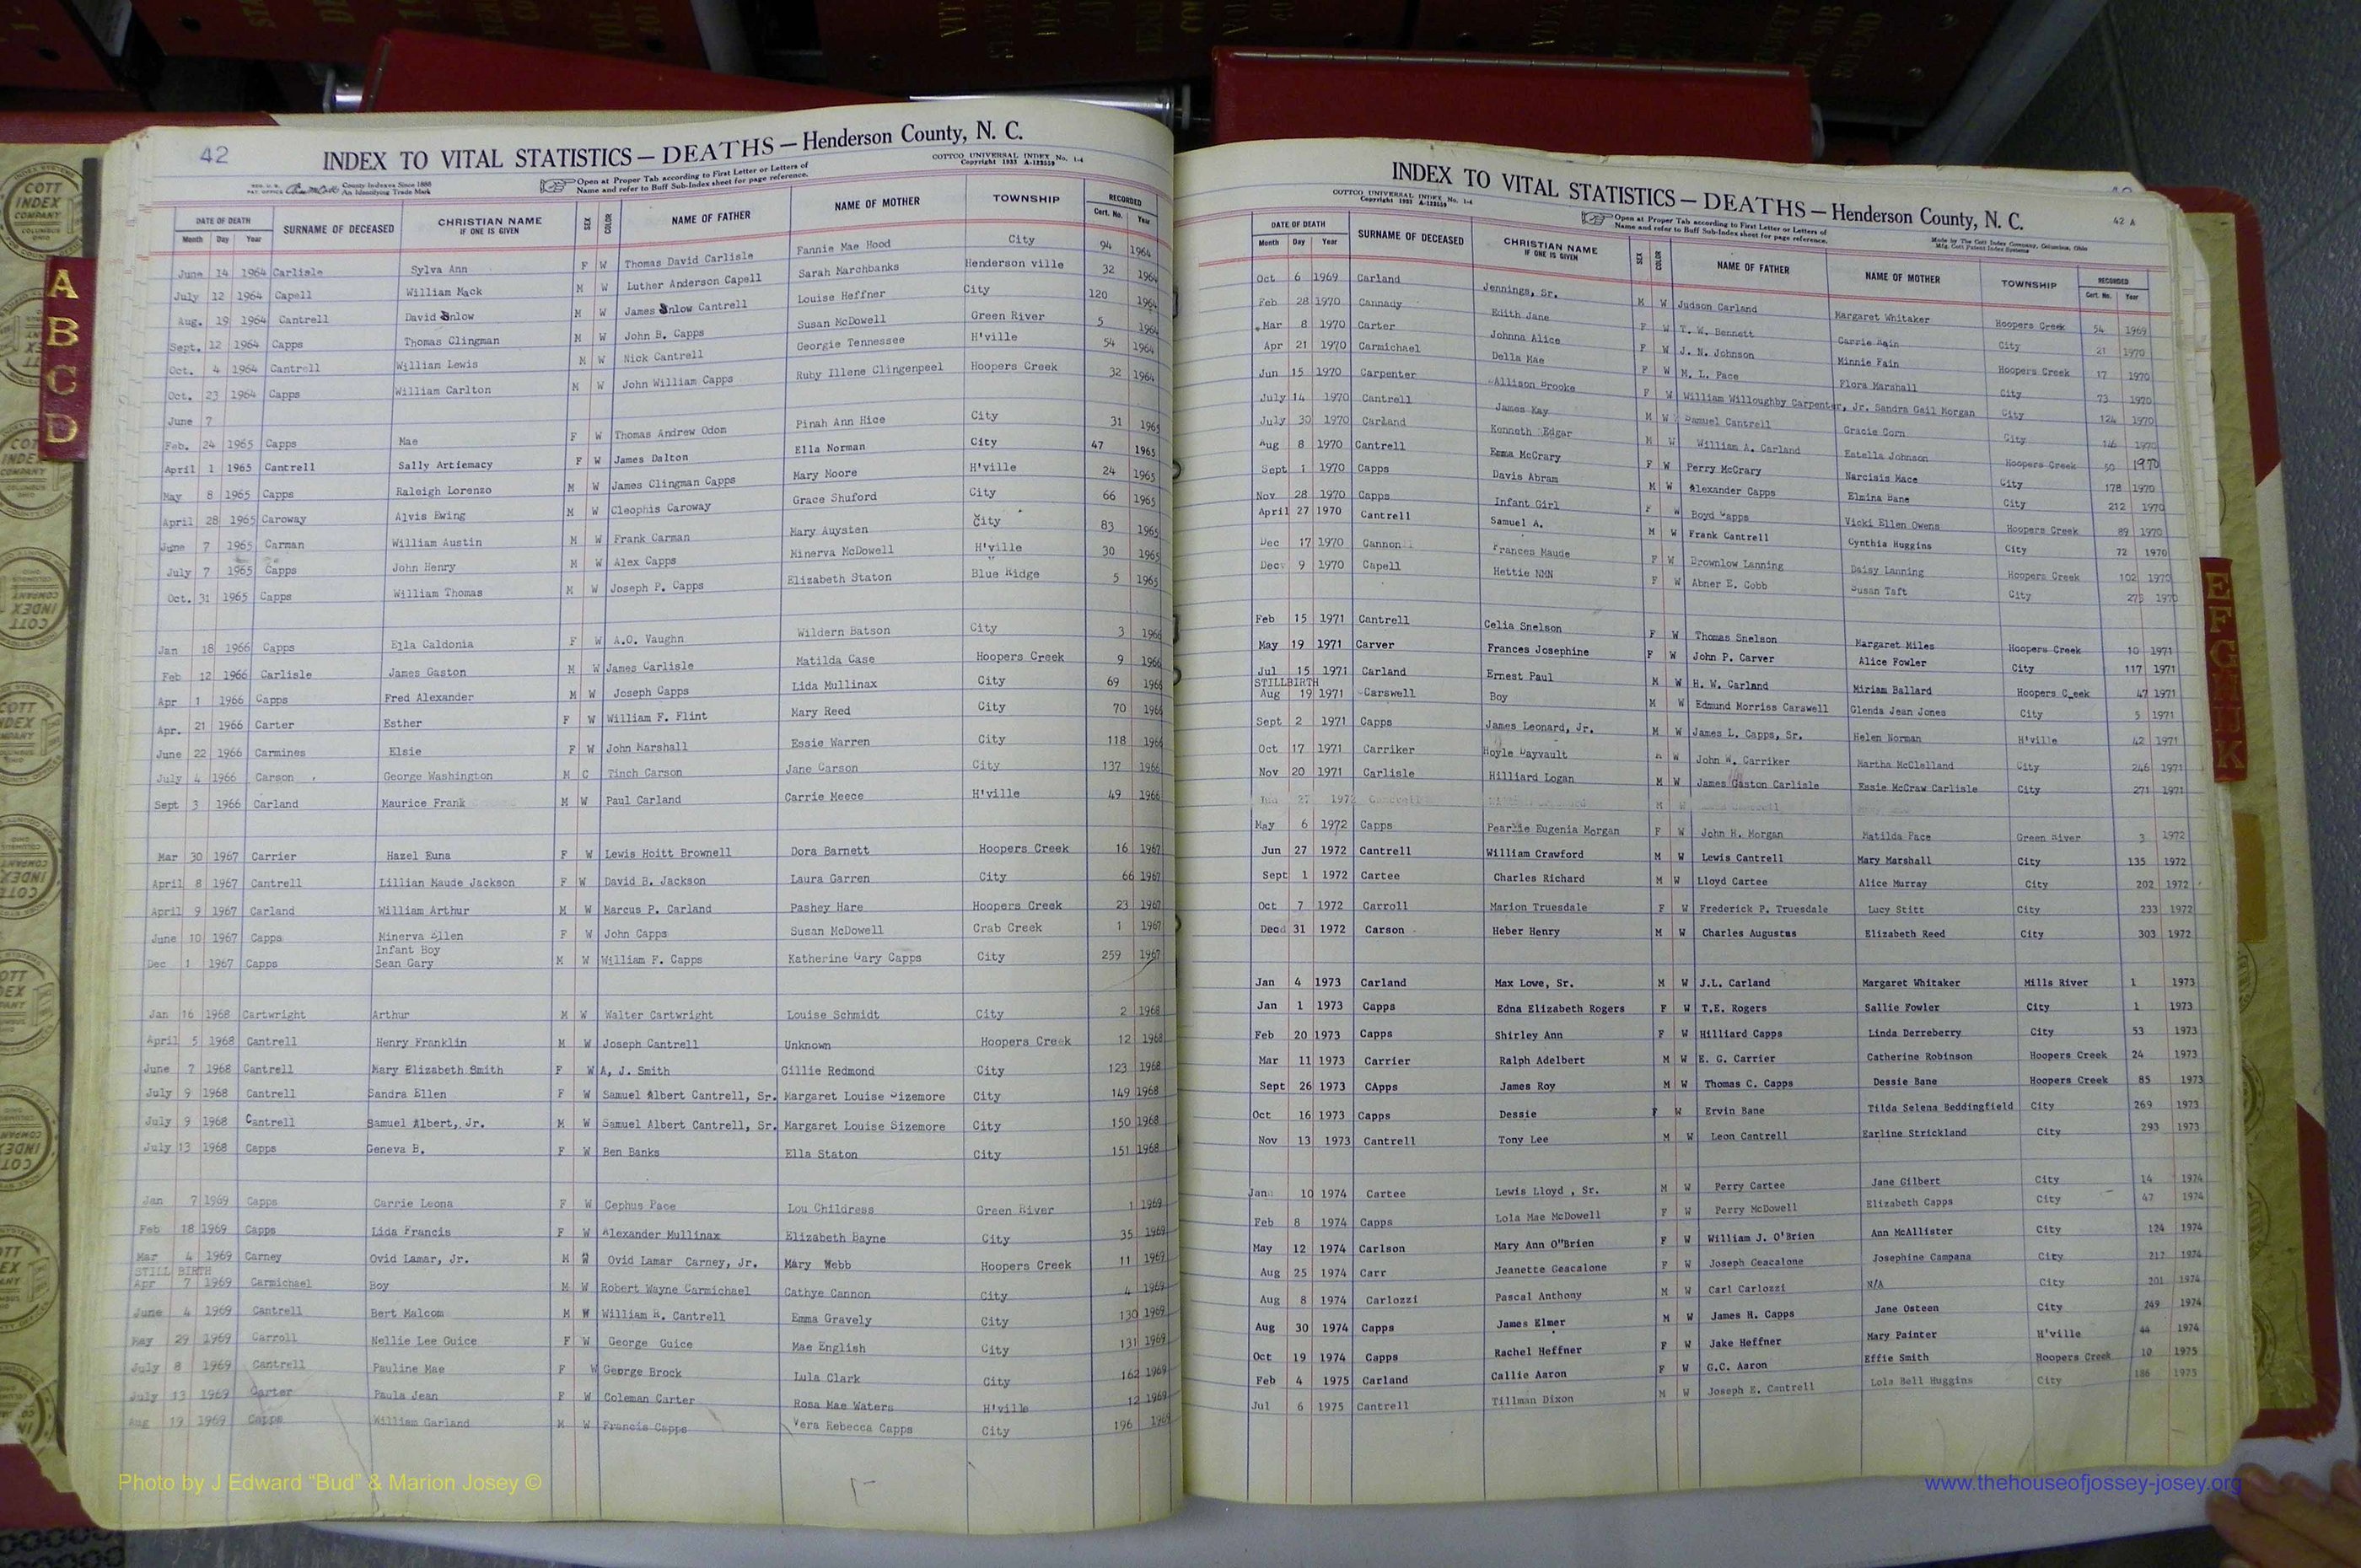 42
INDEX TO VITAL STATISTICS — DEATHS — Henderson County, N. C.
COTTCO UNIVERSAL INDEX No. 1-4
Copyright 1933 A-123559
County Indexes Since 1888
An Identifying Trade Mark
Open at Proper Tab according to First Letter or Letters of
Name and refer to Buff Sub-Index sheet for page reference.
DATE OF DEATH Month Day Year SURNAME OF DECEASED CHRISTIAN NAME IF ONE IS GIVEN SEX COLOR NAME OF FATHER NAME OF MOTHER TOWNSHIP RECORDED Cert. No. Year
June 14 1964 Carlisle Sylva Ann F W Thomas David Carlisle Fannie Mae Hood City 94 1964
July 12 1964 Capell William Mack M W Luther Anderson Capell Sarah Marchbanks Henderson ville 32 1964
Aug. 19 1964 Cantrell David Enlow M W James Enlow Cantrell Louise Heffner City 120 1964
Sept. 12 1964 Capps Thomas Clingman M W John B. Capps Susan McDowell Green River 5 1964
Oct. 4 1964 Cantrell William Lewis M W Nick Cantrell Georgie Tennessee H'ville 54 1964
Oct. 23 1964 Capps William Carlton M W John William Capps Ruby Illene Clingenpeel Hoopers Creek 32 1964
June 7
Feb. 24 1965 Capps Mae F W Thomas Andrew Odom Pinah Ann Hice City 31 1965
April 1 1965 Cantrell Sally Artiemacy F W James Dalton Ella Norman City 47 1965
May 8 1965 Capps Raleigh Lorenzo M W James Clingman Capps Mary Moore H'ville 24 1965
April 28 1965 Caroway Alvis Ewing M W Cleophis Caroway Grace Shuford City 66 1965
June 7 1965 Carman William Austin M W Frank Carman Mary Auysten City 83 1965
July 7 1965 Capps John Henry M W Alex Capps Minerva McDowell H'ville 30 1965
Oct. 31 1965 Capps William Thomas M W Joseph P. Capps Elizabeth Staton Blue Ridge 5 1965
Jan 18 1966 Capps Ella Caldonia F W A.O. Vaughn Wildern Batson City 3 1966
Feb 12 1966 Carlisle James Gaston M W James Carlisle Matilda Case Hoopers Creek 9 1966
Apr 1 1966 Capps Fred Alexander M W Joseph Capps Lida Mullinax City 69 1966
Apr. 21 1966 Carter Esther F W William F. Flint Mary Reed City 70 1966
June 22 1966 Carmines Elsie F W John Marshall Essie Warren City 118 1966
July 4 1966 Carson George Washington M C Tinch Carson Jane Carson City 137 1966
Sept 3 1966 Carland Maurice Frank M W Paul Carland Carrie Meece H'ville 49 1966
Mar 30 1967 Carrier Hazel Euna F W Lewis Hoitt Brownell Dora Barnett Hoopers Creek 16 1967
April 8 1967 Cantrell Lillian Maude Jackson F W David B. Jackson Laura Garren City 66 1967
April 9 1967 Carland William Arthur M W Marcus P. Carland Pashey Hare Hoopers Creek 23 1967
June 10 1967 Capps Minerva Ellen F W John Capps Susan McDowell Crab Creek 1 1967
Infant Boy
Dec 1 1967 Capps Sean Gary M W William F. Capps Katherine Gary Capps City 259 1967
Jan 16 1968 Cartwright Arthur M W Walter Cartwright Louise Schmidt City 2 1968
April 5 1968 Cantrell Henry Franklin M W Joseph Cantrell Unknown Hoopers Creek 12 1968
June 7 1968 Cantrell Mary Elizabeth Smith F W A, J. Smith Gillie Redmond City 123 1968
July 9 1968 Cantrell Sandra Ellen F W Samuel Albert Cantrell, Sr. Margaret Louise Sizemore City 149 1968
July 9 1968 Cantrell Samuel Albert, Jr. M W Samuel Albert Cantrell, Sr. Margaret Louise Sizemore City 150 1968
July 13 1968 Capps Geneva B. F W Ben Banks Ella Staton City 151 1968
Jan 7 1969 Capps Carrie Leona F W Cephus Pace Lou Childress Green River 1 1969
Feb 18 1969 Capps Lida Francis F W Alexander Mullinax Elizabeth Bayne City 35 1969
Mar 4 1969 Carney Ovid Lamar, Jr. M W Ovid Lamar Carney, Jr. Mary Webb Hoopers Creek 11 1969
STILL BIRTH
Apr 7 1969 Carmichael Boy M W Robert Wayne Carmichael Cathye Cannon City 4 1969
June 4 1969 Cantrell Bert Malcom M W William R. Cantrell Emma Gravely City 130 1969
May 29 1969 Carroll Nellie Lee Guice F W George Guice Mae English City 131 1969
July 8 1969 Cantrell Pauline Mae F W George Brock Lula Clark City 162 1969
July 13 1969 Carter Paula Jean F W Coleman Carter Rosa Mae Waters H'ville 12 1969
Aug 19 1969 Capps William Garland M W Francis Capps Vera Rebecca Capps City 196 1969
INDEX TO VITAL STATISTICS — DEATHS — Henderson County, N. C.
42 A
COTTCO UNIVERSAL INDEX No. 1-4
Copyright 1933 A-123559
Open at Proper Tab according to First Letter or Letters of
Name and refer to Buff Sub-Index sheet for page reference.
Made by The Cott Index Company, Columbus, Ohio
Mfg. Cott Patent Index Systems
DATE OF DEATH Month Day Year SURNAME OF DECEASED CHRISTIAN NAME IF ONE IS GIVEN SEX COLOR NAME OF FATHER NAME OF MOTHER TOWNSHIP RECORDED Cert. No. Year
Oct 6 1969 Carland Jennings, Sr. M W Judson Carland Margaret Whitaker Hoopers Creek 54 1969
Feb 28 1970 Cannady Edith Jane F W T. W. Bennett Carrie Bain City 21 1970
Mar 8 1970 Carter Johnna Alice F W J. N. Johnson Minnie Fain Hoopers Creek 17 1970
Apr 21 1970 Carmichael Della Mae F W M. L. Pace Flora Marshall City 73 1970
Jun 15 1970 Carpenter Allison Brooke F W William Willoughby Carpenter, Jr. Sandra Gail Morgan City 124 1970
July 14 1970 Cantrell James Kay M W Samuel Cantrell Gracie Corn City 146 1970
July 30 1970 Carland Kenneth Edgar M W William A. Carland Estella Johnson Hoopers Creek 50 1970
Aug 8 1970 Cantrell Emma McCrary F W Perry McCrary Narcisis Mace City 178 1970
Sept 1 1970 Capps Davis Abram M W Alexander Capps Elmina Bane City 212 1970
Nov 28 1970 Capps Infant Girl F W Boyd Capps Vicki Ellen Owens Hoopers Creek 89 1970
April 27 1970 Cantrell Samuel A. M W Frank Cantrell Cynthia Huggins City 72 1970
Dec 17 1970 Cannon Frances Maude F W Brownlow Lanning Daisy Lanning Hoopers Creek 102 1970
Dec 9 1970 Capell Hettie NMN F W Abner E. Cobb Susan Taft City 273 1970
Feb 15 1971 Cantrell Celia Snelson F W Thomas Snelson Margaret Miles Hoopers Creek 10 1971
May 19 1971 Carver Frances Josephine F W John P. Carver Alice Fowler City 117 1971
Jul 15 1971 Carland Ernest Paul M W H. W. Carland Miriam Ballard Hoopers Creek 47 1971
STILLBIRTH
Aug 19 1971 Carswell Boy M W Edmund Morriss Carswell Glenda Jean Jones City 5 1971
Sept 2 1971 Capps James Leonard, Jr. M W James L. Capps, Sr. Helen Norman H'ville 42 1971
Oct 17 1971 Carriker Hoyle Dayvault M W John W. Carriker Martha McClelland City 246 1971
Nov 20 1971 Carlisle Hilliard Logan M W James Gaston Carlisle Essie McCraw Carlisle City 271 1971
27 1972 M W
May 6 1972 Capps Pearlie Eugenia Morgan F W John H. Morgan Matilda Pace Green River 3 1972
Jun 27 1972 Cantrell William Crawford M W Lewis Cantrell Mary Marshall City 135 1972
Sept 1 1972 Cartee Charles Richard M W Lloyd Cartee Alice Murray City 202 1972
Oct 7 1972 Carroll Marion Truesdale F W Frederick P. Truesdale Lucy Stitt City 233 1972
Decd 31 1972 Carson Heber Henry M W Charles Augustus Elizabeth Reed City 303 1972
Jan 4 1973 Carland Max Lowe, Sr. M W J.L. Carland Margaret Whitaker Mills River 1 1973
Jan 1 1973 Capps Edna Elizabeth Rogers F W T.E. Rogers Sallie Fowler City 1 1973
Feb 20 1973 Capps Shirley Ann F W Hilliard Capps Linda Derreberry City 53 1973
Mar 11 1973 Carrier Ralph Adelbert M W E. G. Carrier Catherine Robinson Hoopers Creek 24 1973
Sept 26 1973 CApps James Roy M W Thomas C. Capps Dessie Bane Hoopers Creek 85 1973
Oct 16 1973 Capps Dessie F W Ervin Bane Tilda Selena Beddingfield City 269 1973
Nov 13 1973 Cantrell Tony Lee M W Leon Cantrell Earline Strickland City 293 1973
Jan 10 1974 Cartee Lewis Lloyd , Sr. M W Perry Cartee Jane Gilbert City 14 1974
Feb 8 1974 Capps Lola Mae McDowell F W Perry McDowell Elizabeth Capps City 47 1974
May 12 1974 Carlson Mary Ann O"Brien F W William J. O'Brien Ann McAllister City 124 1974
Aug 25 1974 Carr Jeanette Geacalone F W Joseph Geacalone Josephine Campana City 217 1974
Aug 8 1974 Carlozzi Pascal Anthony M W Carl Carlozzi N/A City 201 1974
Aug 30 1974 Capps James Elmer M W James H. Capps Jane Osteen City 249 1974
Oct 19 1974 Capps Rachel Heffner F W Jake Heffner Mary Painter H'ville 44 1974
Feb 4 1975 Carland Callie Aaron F W G.C. Aaron Effie Smith Hoopers Creek 10 1975
Jul 6 1975 Cantrell Tillman Dixon M W Joseph E. Cantrell Lola Bell Huggins City 186 1975
A
B
C
D
E
F
G
H
IJ
K
COTT
INDEX
COMPANY
COLUMBUS
OHIO
Photo by J Edward “Bud” & Marion Josey ©
www.thehouseofjossey-josey.org